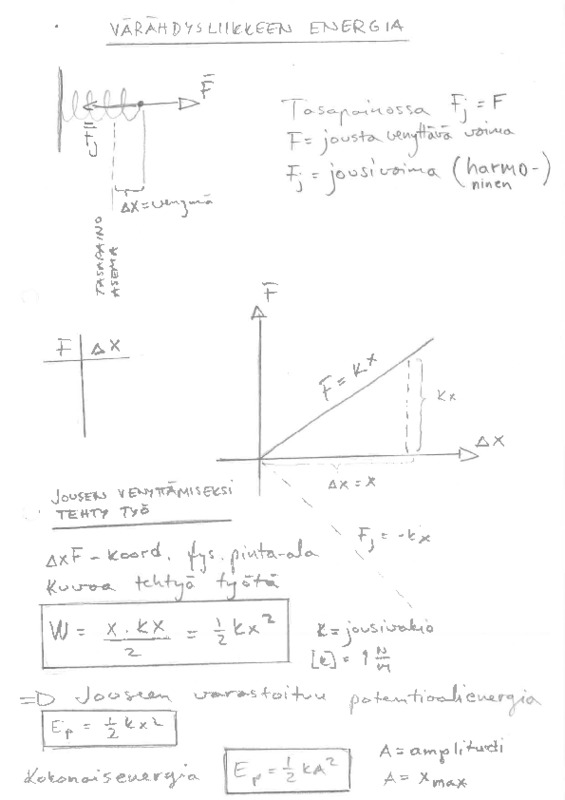 VÄRÄHDYSLIIKKEEN ENERGIA
F̄
F̄j
Δx = venymä
TASAPAINO
ASEMA
Tasapainossa Fj = F
F = jousta venyttävä voima
Fj = jousivoima (harmo-
ninen)
F Δx
F̄
F̄ = kx
kx
Δx
Δx = x
Fj = -kx
JOUSEN VENYTTÄMISEKSI
TEHTY TYÖ
ΔxF - koord. fys. pinta-ala
kuvaa tehtyä työtä
W = x · kx / 2 = ½ kx²
k = jousivakio
[k] = 1 N/m
=> Jouseen varastoituu potentiaalienergia
Ep = ½ kx²
Kokonaisenergia Ep = ½ kA²
A = amplitudi
A = xmax